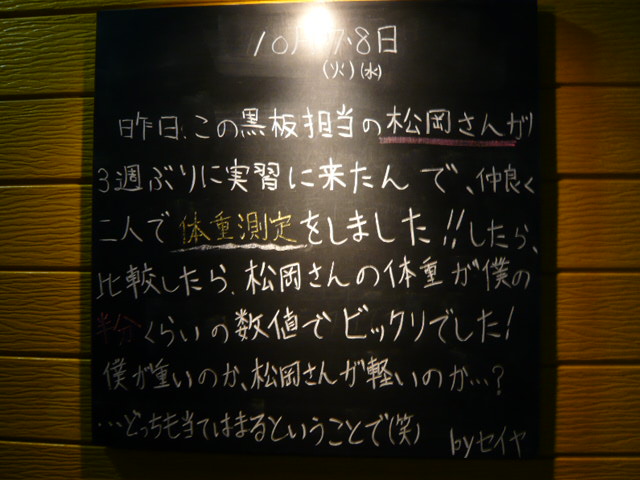 10月7.8日
(火)(水)
昨日、この黒板担当の松岡さんが
3週ぶりに実習に来たんで、仲良く
二人で体重測定をしました!!したら、
比較したら、松岡さんの体重が僕の
半分くらいの数値でビックリでした!
僕が重いのか、松岡さんが軽いのか…?
…どっちも当てはまるということで(笑)
byセイヤ